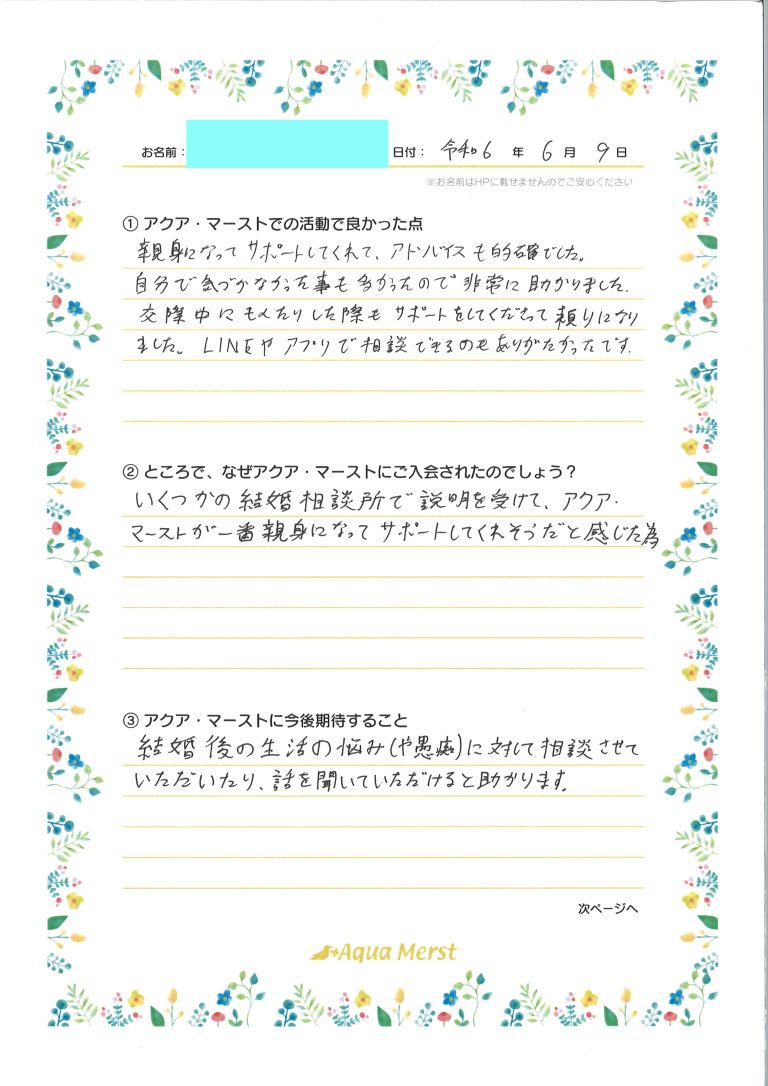 お名前： 日付： 令和6 年 6 月 9 日
※お名前はHPに載せませんのでご安心ください
① アクア・マーストでの活動で良かった点
親身になってサポートしてくれて、アドバイスも的確でした。
自分で気づかなかった事も多かったので非常に助かりました。
交際中にもめたりした際もサポートをしてくださって頼りになり
ました。LINEやアプリで相談できるのもありがたかったです。
② ところで、なぜアクア・マーストにご入会されたのでしょう？
いくつかの結婚相談所で説明を受けて、アクア・
マーストが一番親身になってサポートしてくれそうだと感じた為
③ アクア・マーストに今後期待すること
結婚後の生活の悩み(や愚痴)に対して相談させて
いただいたり、話を聞いていただけると助かります。
次ページへ
Aqua Merst